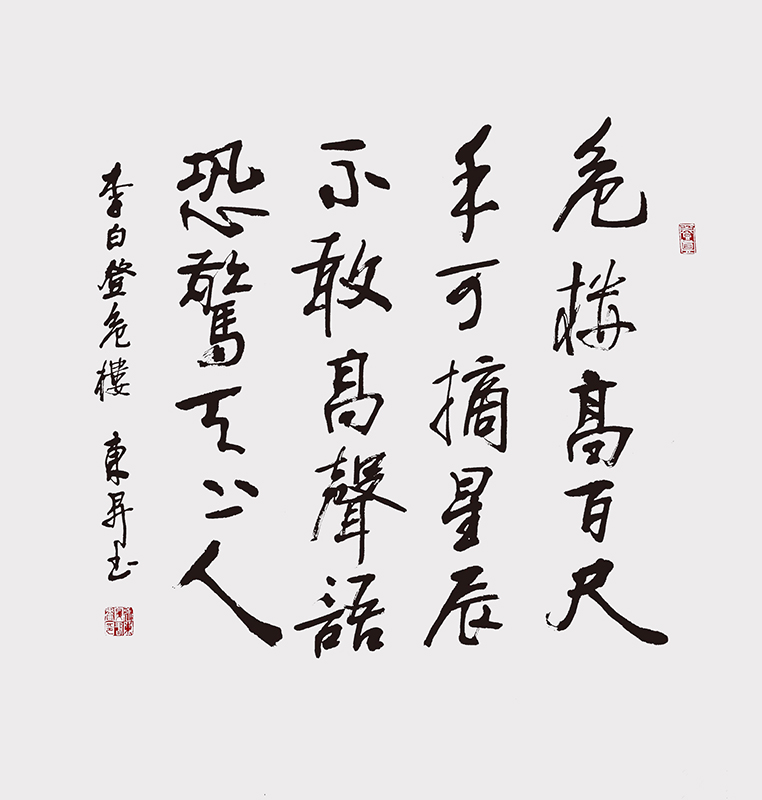 危樓高百尺
手可摘星辰
不敢高聲語
恐驚天上人
李白登危樓 東昇書